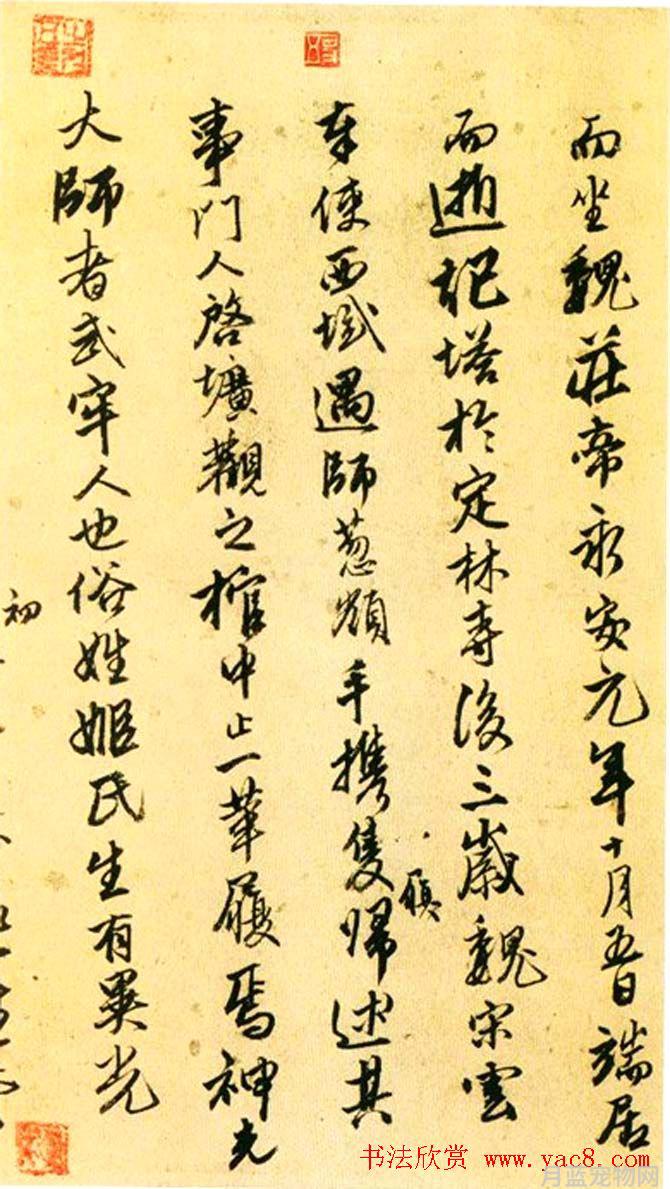 而坐魏莊帝永安元年十月五日端居
而逝記塔於定林寺後三歲魏宋雲
奉使西域遇師葱嶺手携隻歸述其
履
事門人啓壙觀之棺中止一革履焉神光
大師者武牢人也俗姓姬氏生有異光
初
书法欣赏 www.yac8.com
月蓝宠物网